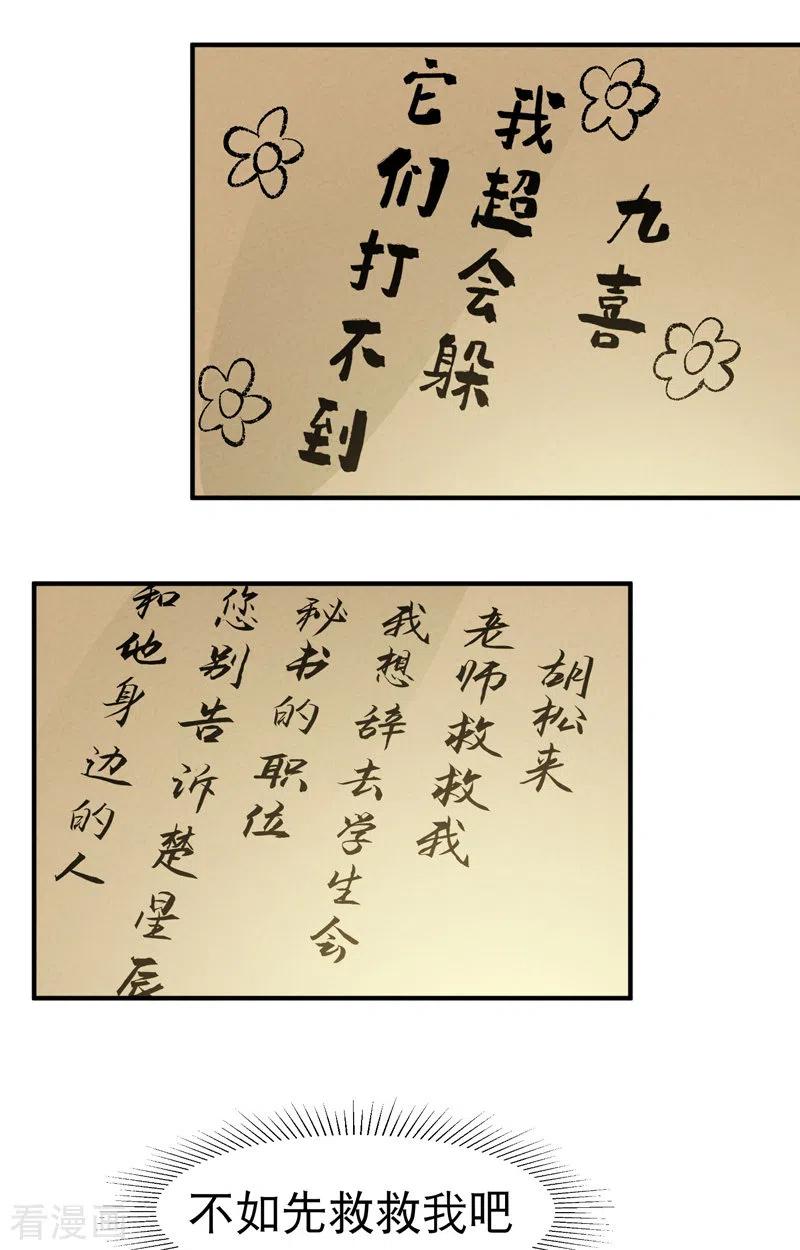 九喜
我超会躲
它们打不到
胡松来
老师救救我
我想辞去学生会
秘书的职位
您别告诉楚星辰
和他身边的人
不如先救救我吧
看漫画